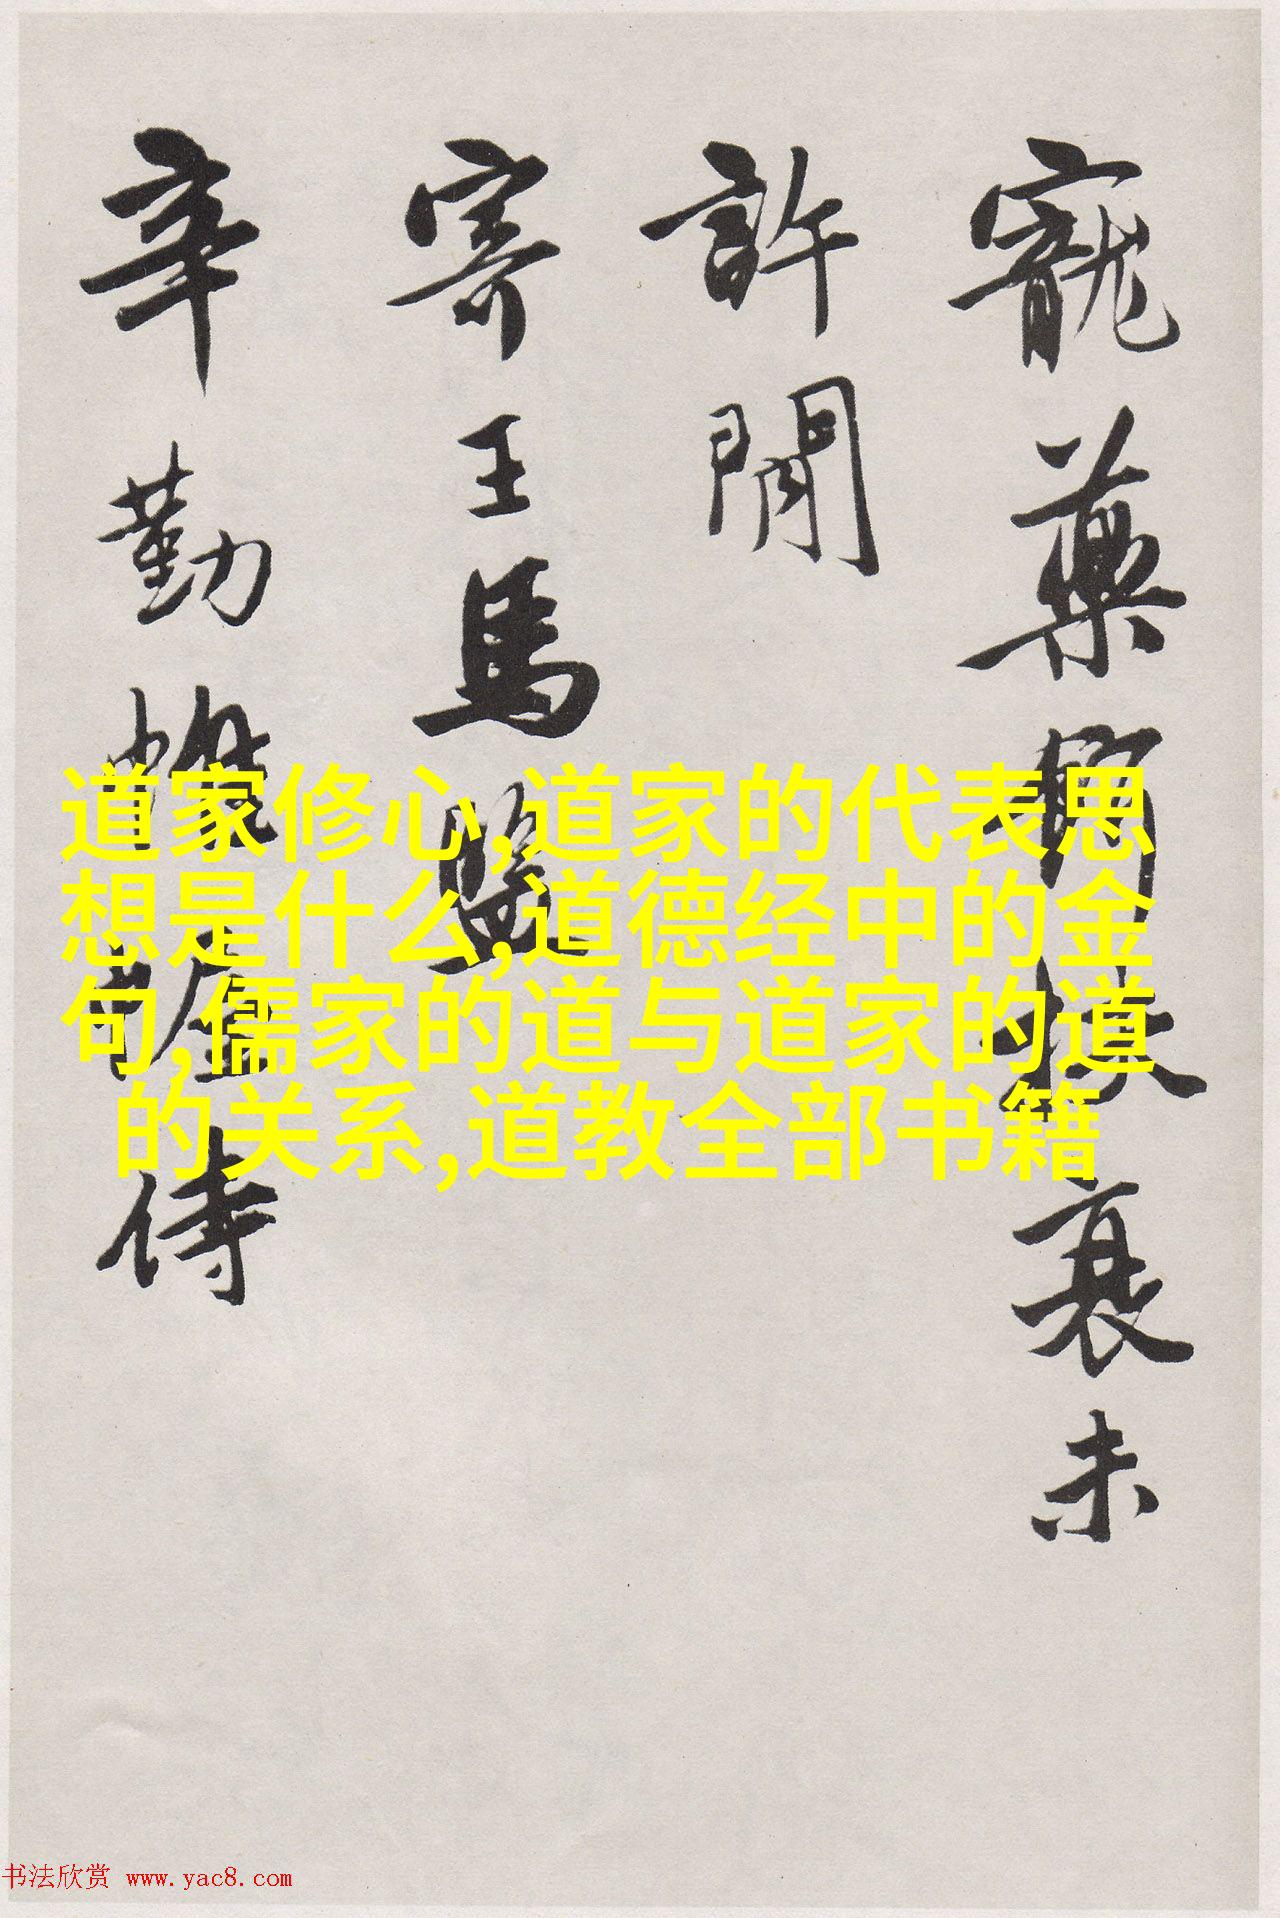 寵藥窮扶衰未
許閒
寄王馬監
辛勤惟座侍
道家修心,道家的代表思
想是什么,道德经中的金
句,儒家的道与道家的道
的关系,道教全部书籍
书法欣赏 www.yac8.com